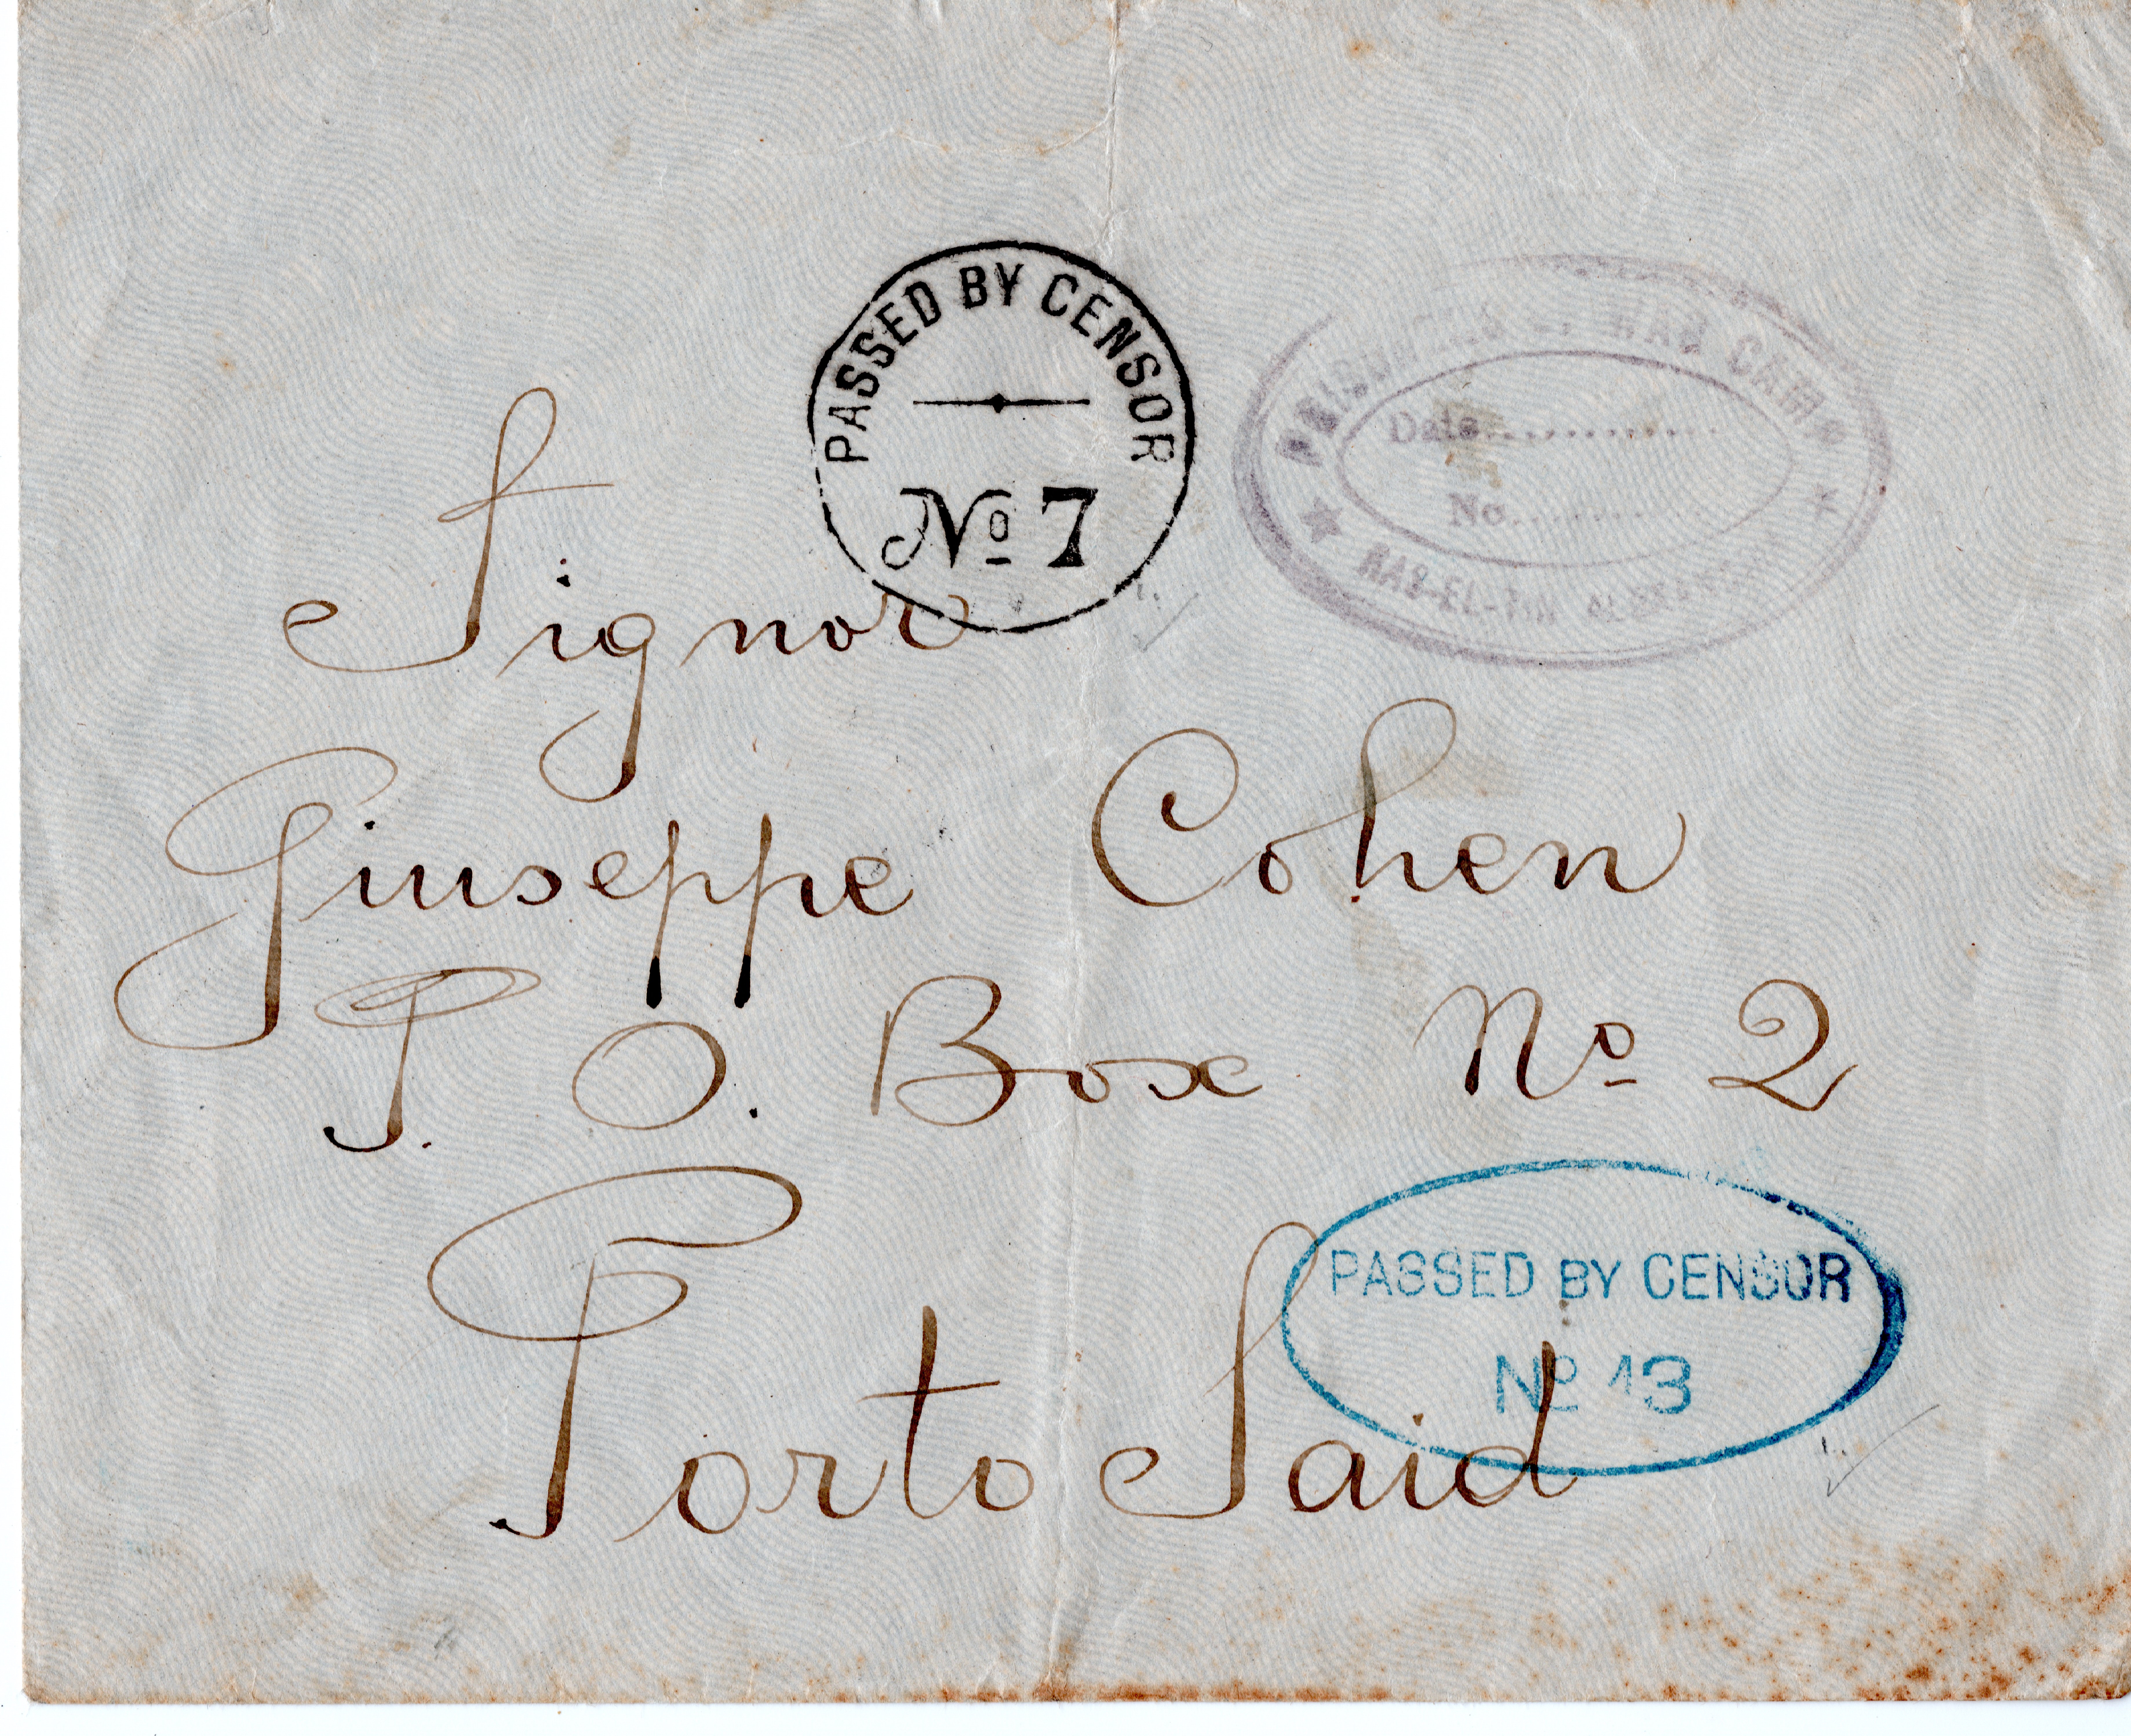 PASSED BY CENSOR
Nº 7
PRISONERS OF WAR CAMP
Date..............
No..........
RAS-EL-TIN ALEXANDRIA
Signor
Giuseppe Cohen
P. O. Box Nº 2
Porto Said
PASSED BY CENSOR
Nº 13